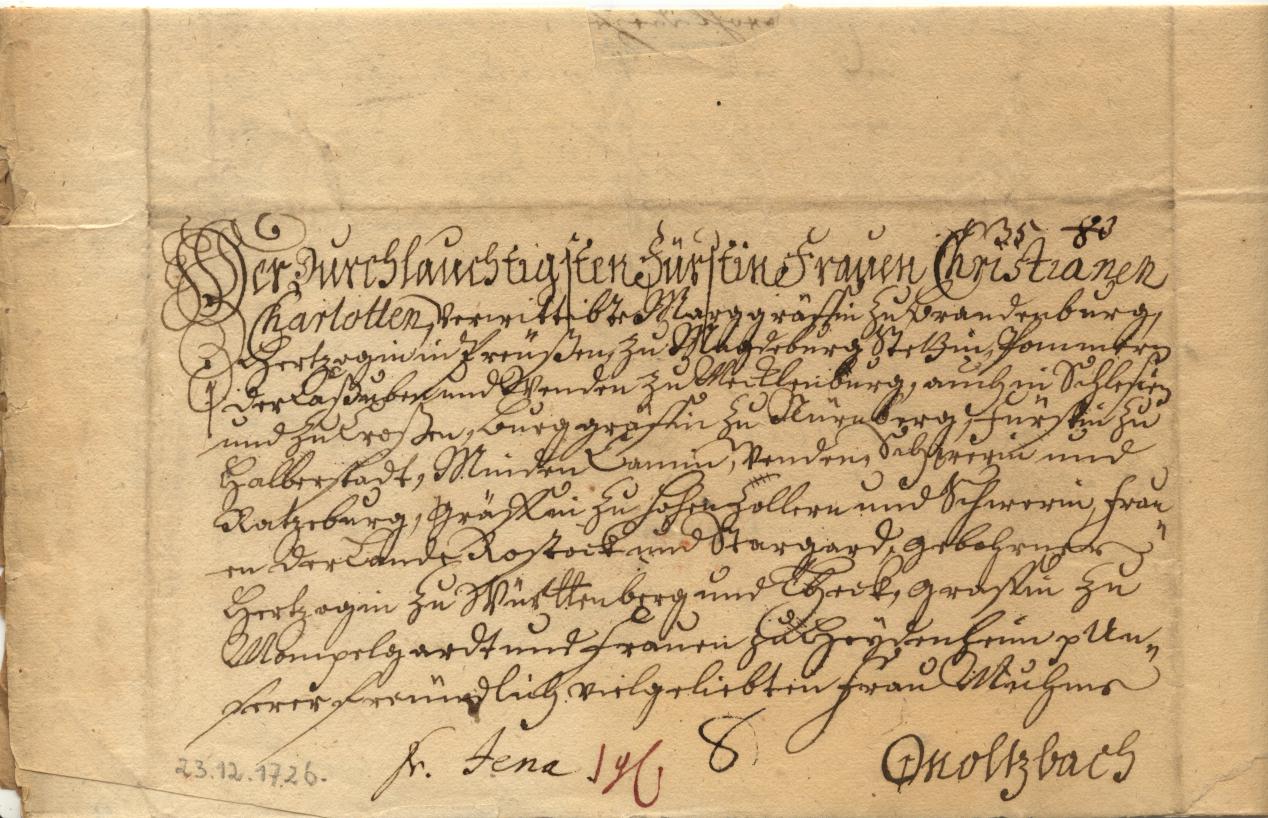 Der Durchlauchtigsten Fürstin Frauen Christianen
Charlotten, verwittibte Marggräffin zu Brandenburg,
Hertzogin in Preüßen, zu Magdeburg, Stettin, Pommern
der Caßuben und Wenden zu Mecklenburg, auch in Schlesien
und zu Croßen, Burggräffin zu Nürnberg, Fürstin zu
Halberstadt, Minden Camin, Wenden, Schwerin und
Ratzeburg, Gräffin zu Hohen Zollern und Schwerin, Frau"
en der Lande Rostock und Stargard, gebohrner
Hertzogin zu Württenberg und Theck, Gräffin zu
Mompelgardt und Frauen zu Heydenheim p Un"
serer freündlich vielgeliebten Frau Muhme
fr. Jena 8 Onoltzbach
23.12.1726.